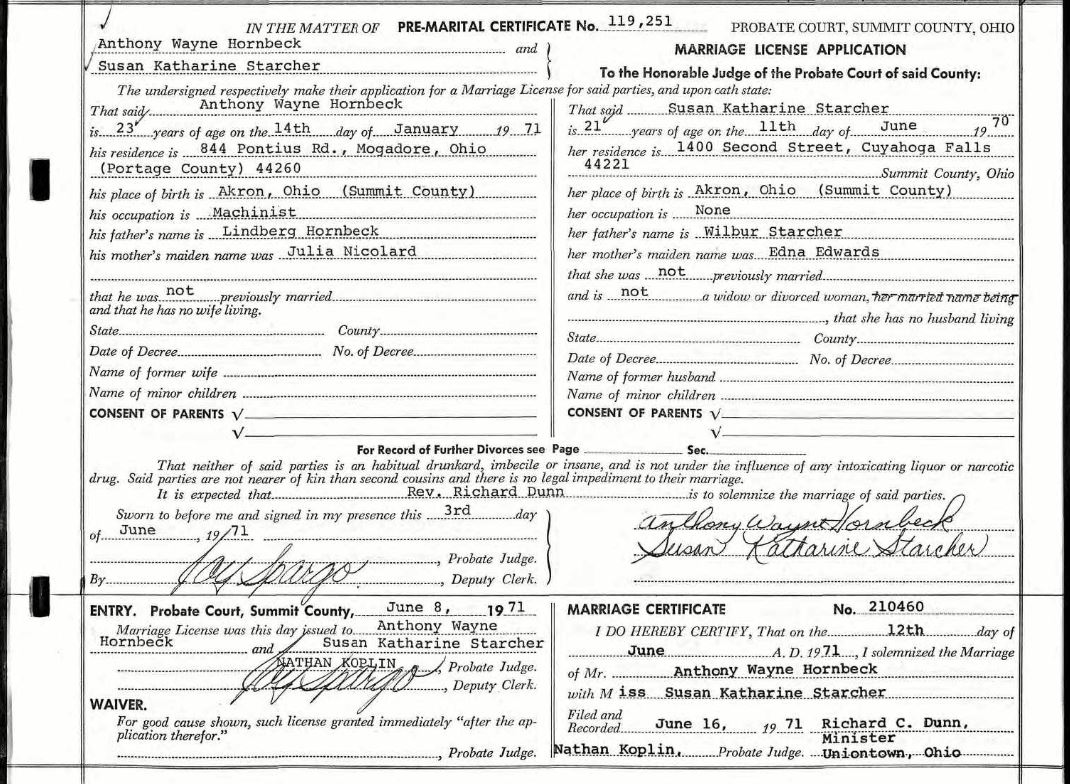 IN THE MATTER OF PRE-MARITAL CERTIFICATE No. 119,251 PROBATE COURT, SUMMIT COUNTY, OHIO
Anthony Wayne Hornbeck and
Susan Katharine Starcher
MARRIAGE LICENSE APPLICATION
To the Honorable Judge of the Probate Court of said County:
The undersigned respectively make their application for a Marriage License for said parties, and upon oath state:
That said Anthony Wayne Hornbeck
is 23 years of age on the 14th day of January 19 71
his residence is 844 Pontius Rd., Mogadore, Ohio
(Portage County) 44260
his place of birth is Akron, Ohio (Summit County)
his occupation is Machinist
his father's name is Lindberg Hornbeck
his mother's maiden name was Julia Nicolard
that he was not previously married
and that he has no wife living.
State County
Date of Decree No. of Decree
Name of former wife
Name of minor children
CONSENT OF PARENTS √
√
That said Susan Katharine Starcher
is 21 years of age on the 11th day of June 19 70
her residence is 1400 Second Street, Cuyahoga Falls
44221 Summit County, Ohio
her place of birth is Akron, Ohio (Summit County)
her occupation is None
her father's name is Wilbur Starcher
her mother's maiden name was Edna Edwards
that she was not previously married
and is not a widow or divorced woman, her married name being
, that she has no husband living
State County
Date of Decree No. of Decree
Name of former husband
Name of minor children
CONSENT OF PARENTS √
√
For Record of Further Divorces see Page Sec.
That neither of said parties is an habitual drunkard, imbecile or insane, and is not under the influence of any intoxicating liquor or narcotic
drug. Said parties are not nearer of kin than second cousins and there is no legal impediment to their marriage.
It is expected that Rev. Richard Dunn is to solemnize the marriage of said parties.
Sworn to before me and signed in my presence this 3rd day
of June , 19/71
, Probate Judge.
By Jay Spargo , Deputy Clerk.
Anthony Wayne Hornbeck
Susan Katharine Starcher
ENTRY. Probate Court, Summit County, June 8, 19 71
Marriage License was this day issued to Anthony Wayne
Hornbeck and Susan Katharine Starcher
NATHAN KOPLIN , Probate Judge.
Jay Spargo , Deputy Clerk.
WAIVER.
For good cause shown, such license granted immediately "after the ap-
plication therefor."
, Probate Judge.
MARRIAGE CERTIFICATE No. 210460
I DO HEREBY CERTIFY, That on the 12th day of
June A. D. 1971 , I solemnized the Marriage
of Mr. Anthony Wayne Hornbeck
with M iss Susan Katharine Starcher
Filed and
Recorded June 16, 19 71 Richard C. Dunn,
Minister
Nathan Koplin, Probate Judge. Uniontown, Ohio